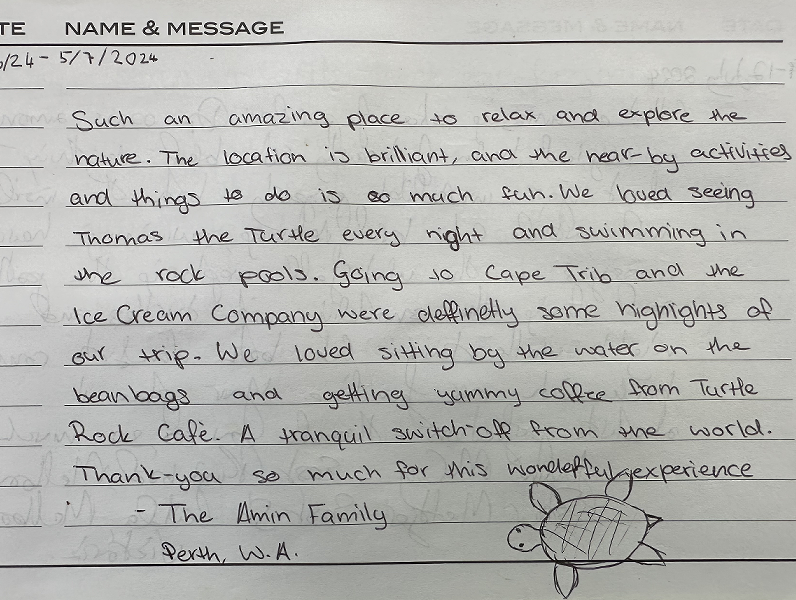 TE NAME & MESSAGE
/24 - 5/7/2024
Such an amazing place to relax and explore the
nature. The location is brilliant, and the near-by activities
and things to do is so much fun. We loved seeing
Thomas the Turtle every night and swimming in
the rock pools. Going to Cape Trib and the
Ice Cream Company were deffinetly some highights of
our trip. We loved sitting by the water on the
beanbags and getting yummy coffee from Turtle
Rock Cafè. A tranquil switch-off from the world.
Thank-you so much for this wondefful experience
- The Amin Family
Perth, W.A.